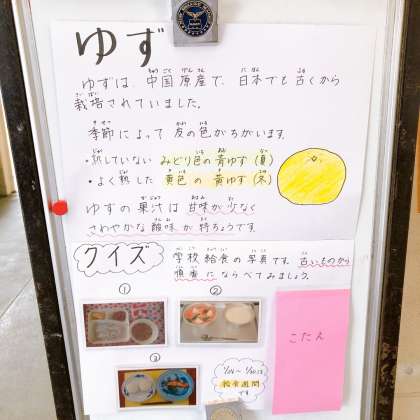 ゆず
ゆずは、中国原産で、日本でも古くから
栽培されていました。
季節によって皮の色がちがいます。
・熟していない みどり色の青ゆず(夏)
・よく熟した 黄色の黄ゆず(冬)
ゆずの果汁は甘味が少なく
さわやかな酸味が特ちょうです。
クイズ
学校給食の写真です。古いものから
順番にならべてみましょう。
①
②
③
こたえ
給食週間
です